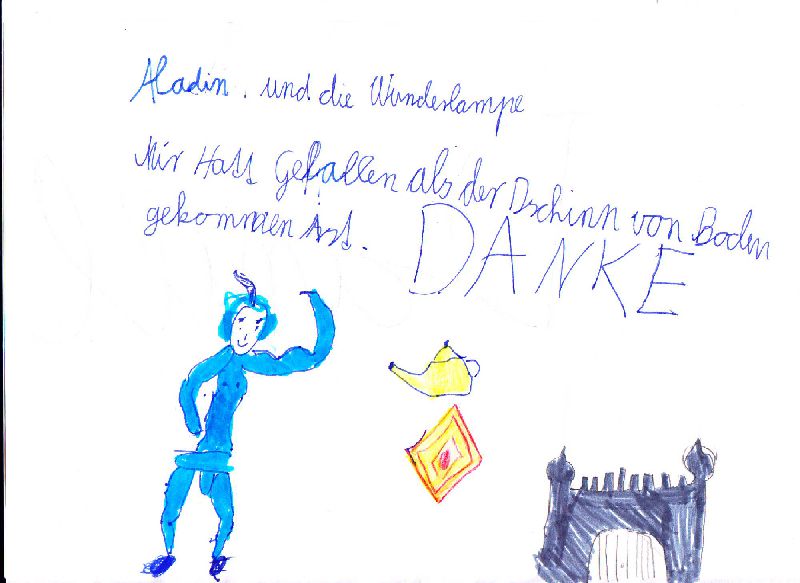 Aladin. und die Wunderlampe
Mir Hatt Gefallen als der Dschinn von Boden
gekommen ist.
DANKE